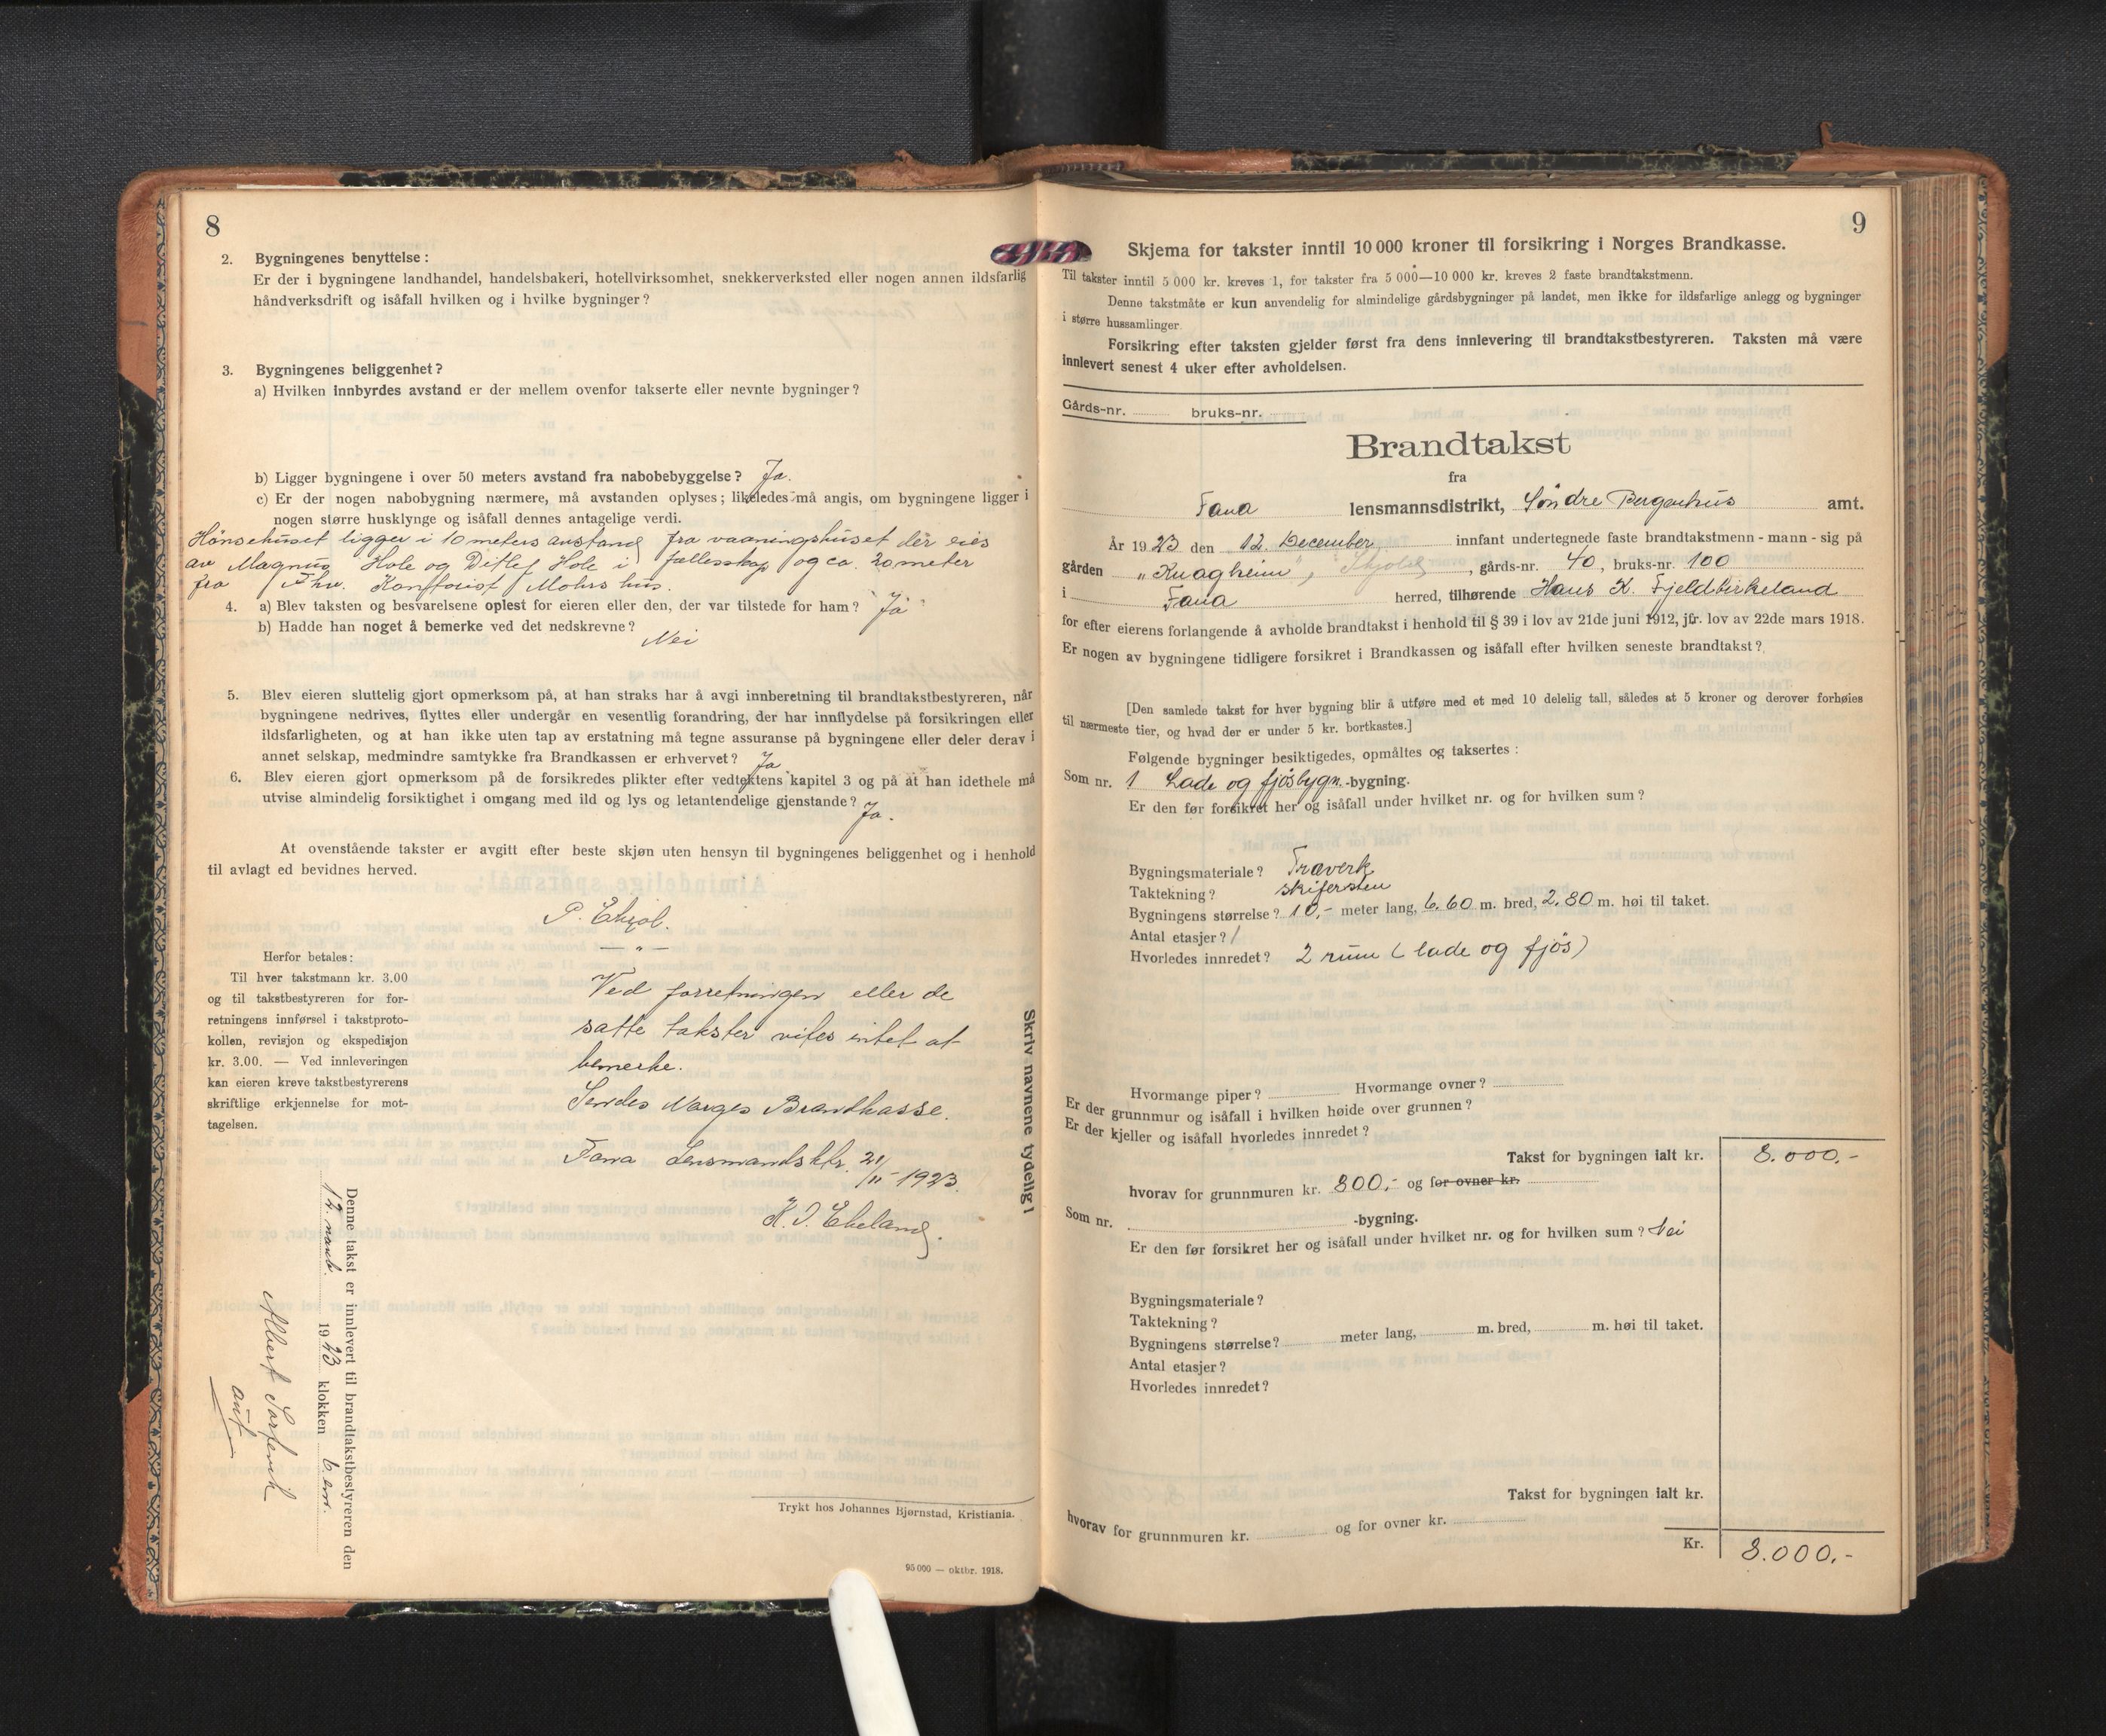 8
2. Bygningenes benyttelse:
Er der i bygningene landhandel, handelsbakeri, hotellvirksomhet, snekkerverksted eller nogen annen ildsfarlig
håndverksdrift og isåfall hvilken og i hvilke bygninger?
3. Bygningenes beliggenhet?
a) Hvilken innbyrdes avstand er der mellem ovenfor takserte eller nevnte bygninger?
b) Ligger bygningene i over 50 meters avstand fra nabobebyggelse? Ja.
c) Er der nogen nabobygning nærmere, må avstanden oplyses; likeledes må angis, om bygningene ligger i
nogen større husklynge og isåfall dennes antagelige verdi.
Hönsehuset ligger i 10 meters avstand fra vaaningshuset der eies
av Magnus Hole og Ditlef Hole i fællesskap og ca. 20 meter
fra Mohrs hus.
4. a) Blev taksten og besvarelsene oplest for eieren eller den, der var tilstede for ham? Ja
b) Hadde han noget å bemerke ved det nedskrevne?
Nei
5. Blev eieren sluttelig gjort opmerksom på, at han straks har å avgi innberetning til brandtakstbestyreren, når
bygningene nedrives, flyttes eller undergår en vesentlig forandring, der har innflydelse på forsikringen eller
ildsfarligheten, og at han ikke uten tap av erstatning må tegne assuranse på bygningene eller deler derav i
annet selskap, medmindre samtykke fra Brandkassen er erhvervet? Ja
6. Blev eieren gjort opmerksom på de forsikredes plikter efter vedtektens kapitel 3 og på at han idethele må
utvise almindelig forsiktighet i omgang med ild og lys og letantendelige gjenstande? Ja.
At ovenstående takster er avgitt efter beste skjøn uten hensyn til bygningenes beliggenhet og i henhold
til avlagt ed bevidnes herved.
— " —
Herfor betales:
Til hver takstmann kr. 3.00
og til takstbestyreren for for-
retningens innførsel i takstproto-
kollen, revisjon og ekspedisjon
kr. 3.00. — Ved innleveringen
kan eieren kreve takstbestyrerens
skriftlige erkjennelse for mot-
tagelsen.
Ved forretningen eller de
satte takster vites intet at
bemerke.
Sendes Norges Brandkasse.
Fana Lensmandsktr. 21/11-1923.
Skriv navnene tydelig!
Denne takst er innlevert til brandtakstbestyreren den
12. 1923 klokken 6 em.
Albert
Trykt hos Johannes Bjørnstad, Kristiania.
95 000 — oktbr. 1918.
9
Skjema for takster inntil 10 000 kroner til forsikring i Norges Brandkasse.
Til takster inntil 5 000 kr. kreves 1, for takster fra 5 000—10 000 kr. kreves 2 faste brandtakstmenn.
Denne takstmåte er kun anvendelig for almindelige gårdsbygninger på landet, men ikke for ildsfarlige anlegg og bygninger
i større hussamlinger.
Forsikring efter taksten gjelder først fra dens innlevering til brandtakstbestyreren. Taksten må være
innlevert senest 4 uker efter avholdelsen.
Gårds-nr. bruks-nr.
Brandtakst
fra
Fana lensmannsdistrikt, Söndre Bergenhus amt.
År 1923 den 12. December innfant undertegnede faste brandtakstmenn - mann - sig på
gården „Knagheim", Skjold, gårds-nr. 40, bruks-nr. 100
i Fana herred, tilhørende Hans K. Fjeldbirkeland
for efter eierens forlangende å avholde brandtakst i henhold til § 39 i lov av 21de juni 1912, jfr. lov av 22de mars 1918.
Er nogen av bygningene tidligere forsikret i Brandkassen og isåfall efter hvilken seneste brandtakst?
[Den samlede takst for hver bygning blir å utføre med et med 10 delelig tall, således at 5 kroner og derover forhøies
til nærmeste tier, og hvad der er under 5 kr. bortkastes.]
Følgende bygninger besiktigedes, opmåltes og taksertes:
Som nr. 1 Lade og fjösbygn.-bygning.
Er den før forsikret her og isåfall under hvilket nr. og for hvilken sum?
Bygningsmateriale? Træverk
Taktekning? skifersten
Bygningens størrelse? 10,- meter lang, 6.60 m. bred, 2.80 m. høi til taket.
Antal etasjer? 1
Hvorledes innredet? 2 rum (lade og fjös)
Hvormange piper? Hvormange ovner?
Er der grunnmur og isåfall i hvilken høide over grunnen?
Er der kjeller og isåfall hvorledes innredet?
Takst for bygningen ialt kr. 8.000,-
hvorav for grunnmuren kr. 800,- og for ovner kr.
Som nr. -bygning.
Er den før forsikret her og isåfall under hvilket nr. og for hvilken sum? Nei
Bygningsmateriale?
Taktekning?
Bygningens størrelse? meter lang, m. bred, m. høi til taket.
Antal etasjer?
Hvorledes innredet?
Takst for bygningen ialt kr.
hvorav for grunnmuren kr. og for ovner kr.
Kr. 8.000,-